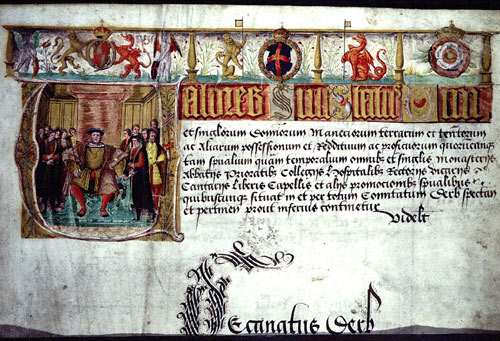 Valores
et singlorum Domiorum Maneriorum terrarum et tentorum
ac aliarum possessionum et Reddituum ac proficuorum quorumcunque
tam spirialium quam temporalium omibus et singlis monasteriis
Abbathiis Prioratibus Collegiis Hospitalibus Rectoriis Vicariis
Cantariis Liberis Capellis et aliis promocionibus spirialibus
quibuscunque situat in et per totum Comitatum Derb spectan
et pertinen prout inferius continetur
Videlt
Decanatus Derb